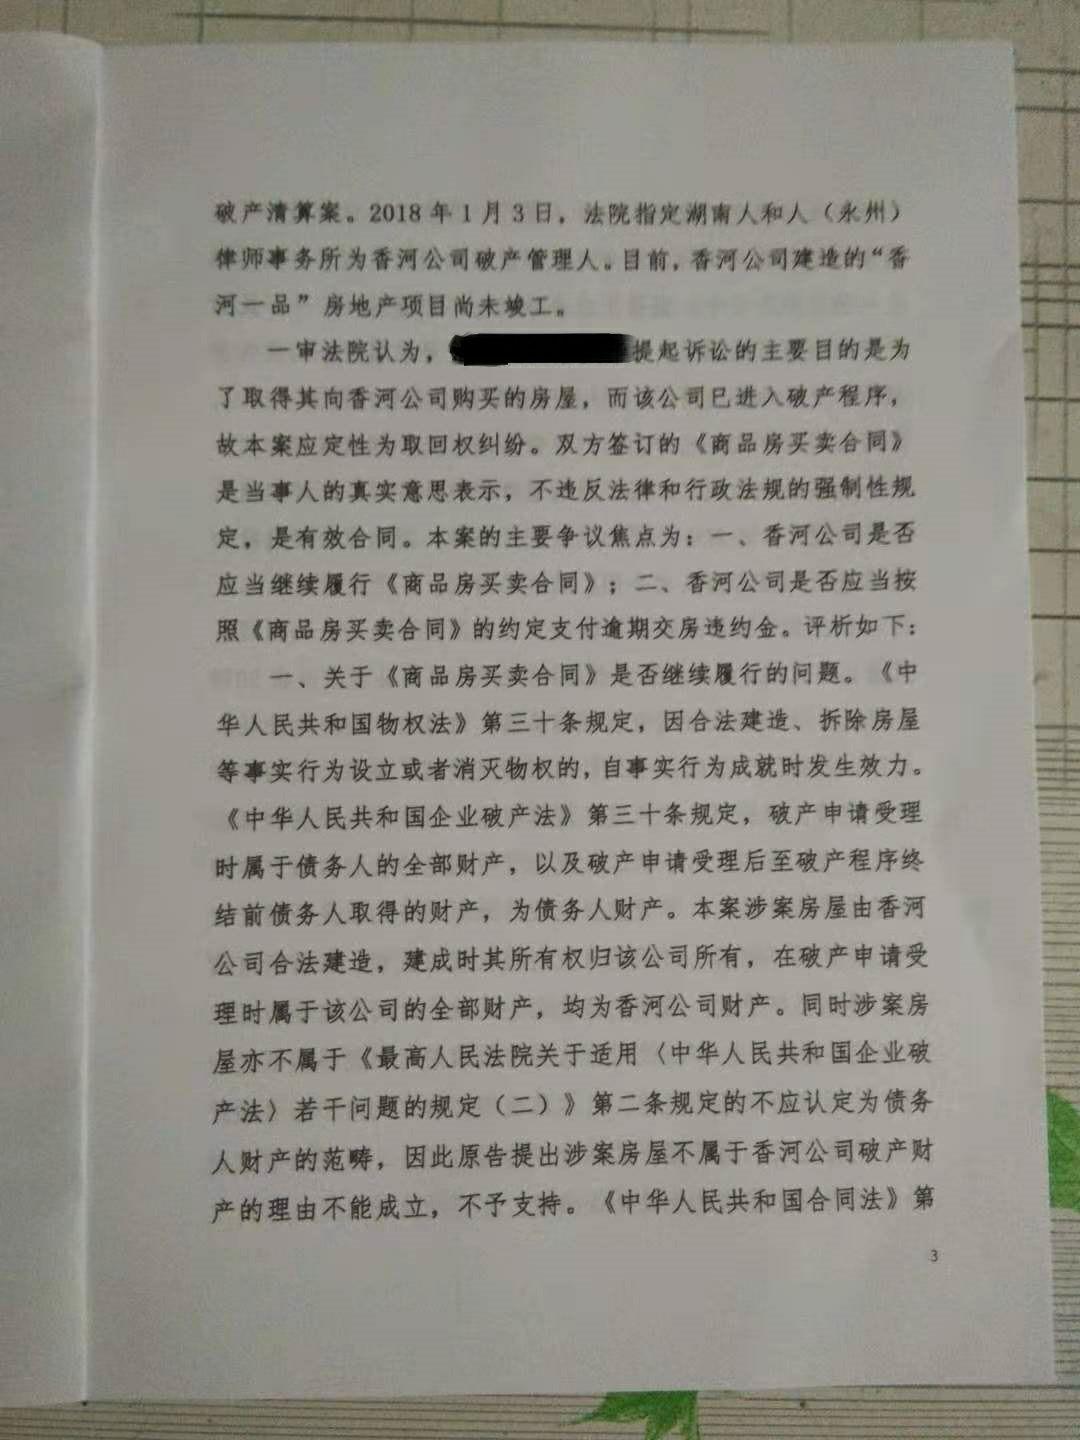 破产清算案。2018年1月3日，法院指定湖南人和人（永州）
律师事务所为香河公司破产管理人。目前，香河公司建造的“香
河一品”房地产项目尚未竣工。
一审法院认为，提起诉讼的主要目的是为
了取得其向香河公司购买的房屋，而该公司已进入破产程序，
故本案应定性为取回权纠纷。双方签订的《商品房买卖合同》
是当事人的真实意思表示，不违反法律和行政法规的强制性规
定，是有效合同。本案的主要争议焦点为：一、香河公司是否
应当继续履行《商品房买卖合同》；二、香河公司是否应当按
照《商品房买卖合同》的约定支付逾期交房违约金。评析如下：
一、关于《商品房买卖合同》是否继续履行的问题。《中
华人民共和国物权法》第三十条规定，因合法建造、拆除房屋
等事实行为设立或者消灭物权的，自事实行为成就时发生效力。
《中华人民共和国企业破产法》第三十条规定，破产申请受理
时属于债务人的全部财产，以及破产申请受理后至破产程序终
结前债务人取得的财产，为债务人财产。本案涉案房屋由香河
公司合法建造，建成时其所有权归该公司所有，在破产申请受
理时属于该公司的全部财产，均为香河公司财产。同时涉案房
屋亦不属于《最高人民法院关于适用〈中华人民共和国企业破
产法〉若干问题的规定（二）》第二条规定的不应认定为债务
人财产的范畴，因此原告提出涉案房屋不属于香河公司破产财
产的理由不能成立，不予支持。《中华人民共和国合同法》第
3